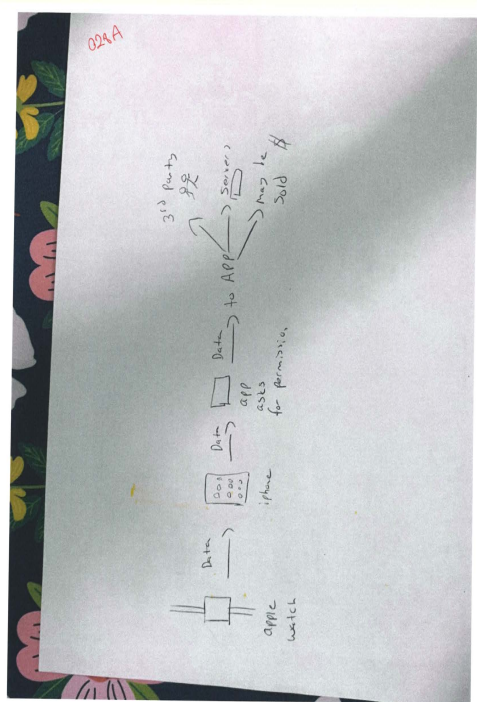 028A
apple
watch
Data
iphone
Data
app
asks
for permission
Data
to APP
3rd party
servers
may be
sold
$